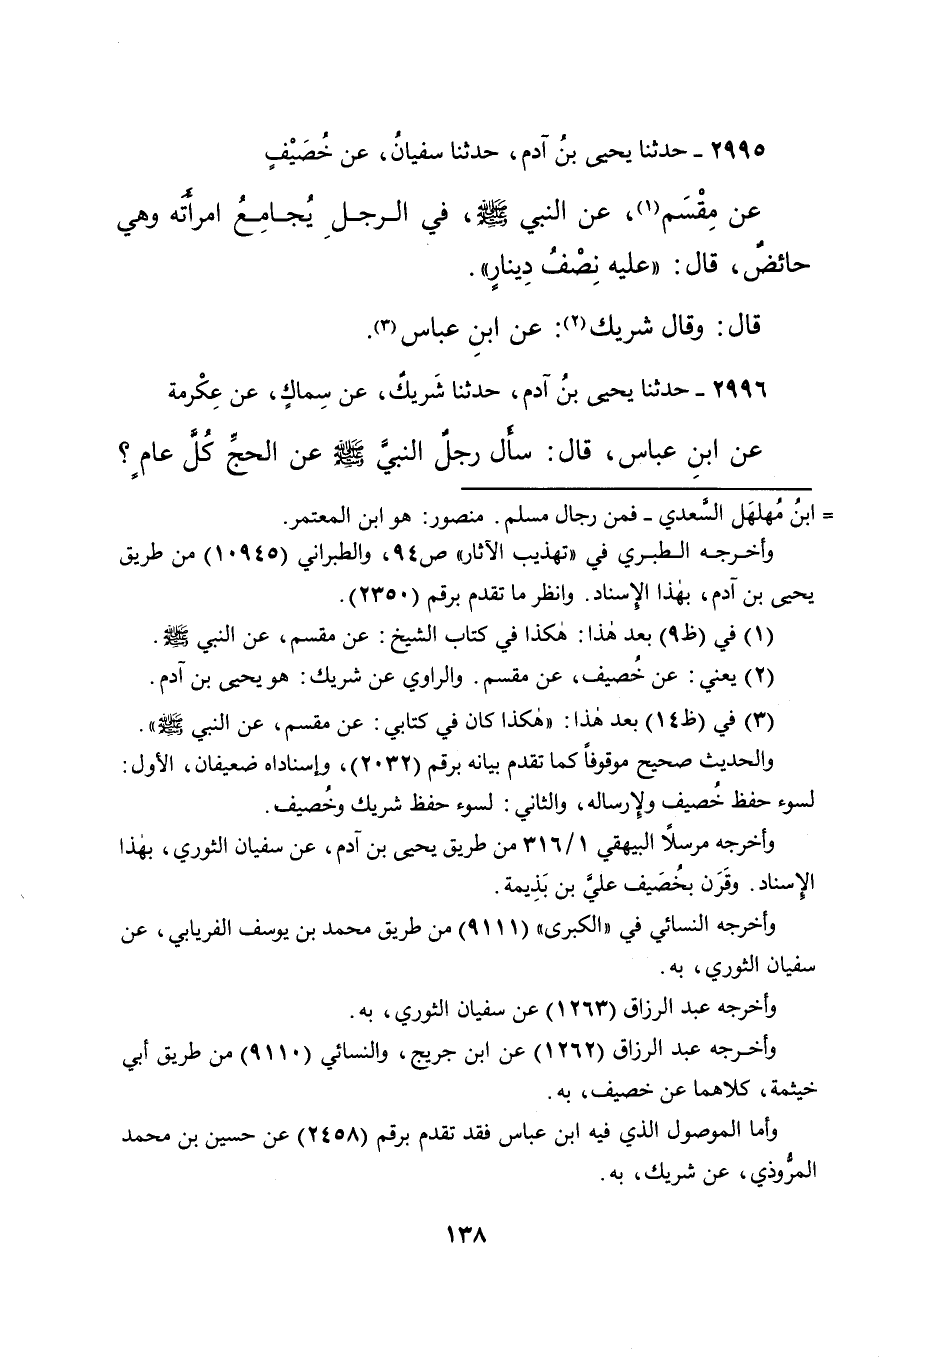 ٢٩٩٥ ـ حدثنا يحيى بنُ آدم، حدثنا سفيانُ، عن خُصَيْفٍ
عن مِقْسَم(١)، عن النبي ﷺ، في الرجلِ يُجامِعُ امرأَتَه وهي
حائضٌ، قال: «عليه نِصْفُ دِينارٍ».
قال: وقال شريك(٢): عن ابنِ عباس(٣).
٢٩٩٦ ـ حدثنا يحيى بنُ آدم، حدثنا شَريكٌ، عن سِماكٍ، عن عِكْرمة
عن ابنِ عباس، قال: سأَل رجلٌ النبيَّ ﷺ عن الحجِّ كُلَّ عامٍ؟
= ابنُ مُهلهَل السَّعدي ـ فمن رجال مسلم. منصور: هو ابن المعتمر.
وأخرجه الطبري في «تهذيب الآثار» ص٩٤، والطبراني (١٠٩٤٥) من طريق
يحيى بن آدم، بهٰذا الإِسناد. وانظر ما تقدم برقم (٢٣٥٠).
(١) في (ظ٩) بعد هٰذا: هٰكذا في كتاب الشيخ: عن مقسم، عن النبي ﷺ.
(٢) يعني: عن خُصيف، عن مقسم. والراوي عن شريك: هو يحيى بن آدم.
(٣) في (ظ١٤) بعد هٰذا: «هٰكذا كان في كتابي: عن مقسم، عن النبي ﷺ».
والحديث صحيح موقوفاً كما تقدم بيانه برقم (٢٠٣٢)، وإسناداه ضعيفان، الأول:
لسوء حفظ خُصيف ولإرساله، والثاني: لسوء حفظ شريك وخُصيف.
وأخرجه مرسلًا البيهقي ٣١٦/١ من طريق يحيى بن آدم، عن سفيان الثوري، بهٰذا
الإِسناد. وقَرَن بخُصَيف عليَّ بن بَذِيمة.
وأخرجه النسائي في «الكبرى» (٩١١١) من طريق محمد بن يوسف الفريابي، عن
سفيان الثوري، به.
وأخرجه عبد الرزاق (١٢٦٣) عن سفيان الثوري، به.
وأخرجه عبد الرزاق (١٢٦٢) عن ابن جريج، والنسائي (٩١١٠) من طريق أبي
خيثمة، كلاهما عن خصيف، به.
وأما الموصول الذي فيه ابن عباس فقد تقدم برقم (٢٤٥٨) عن حسين بن محمد
المرُّوذي، عن شريك، به.
١٣٨